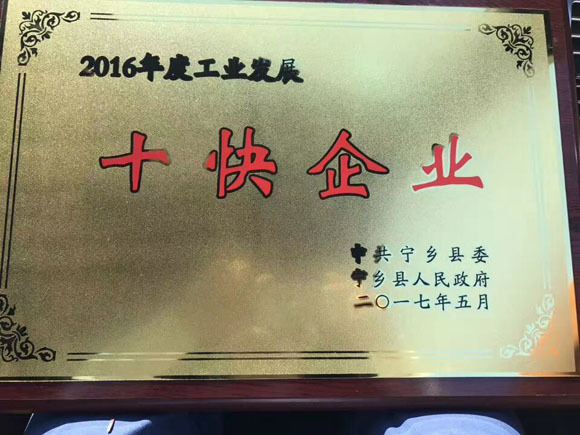 2016年度工业发展
十快企业
中共宁乡县委
宁乡县人民政府
二〇一七年五月